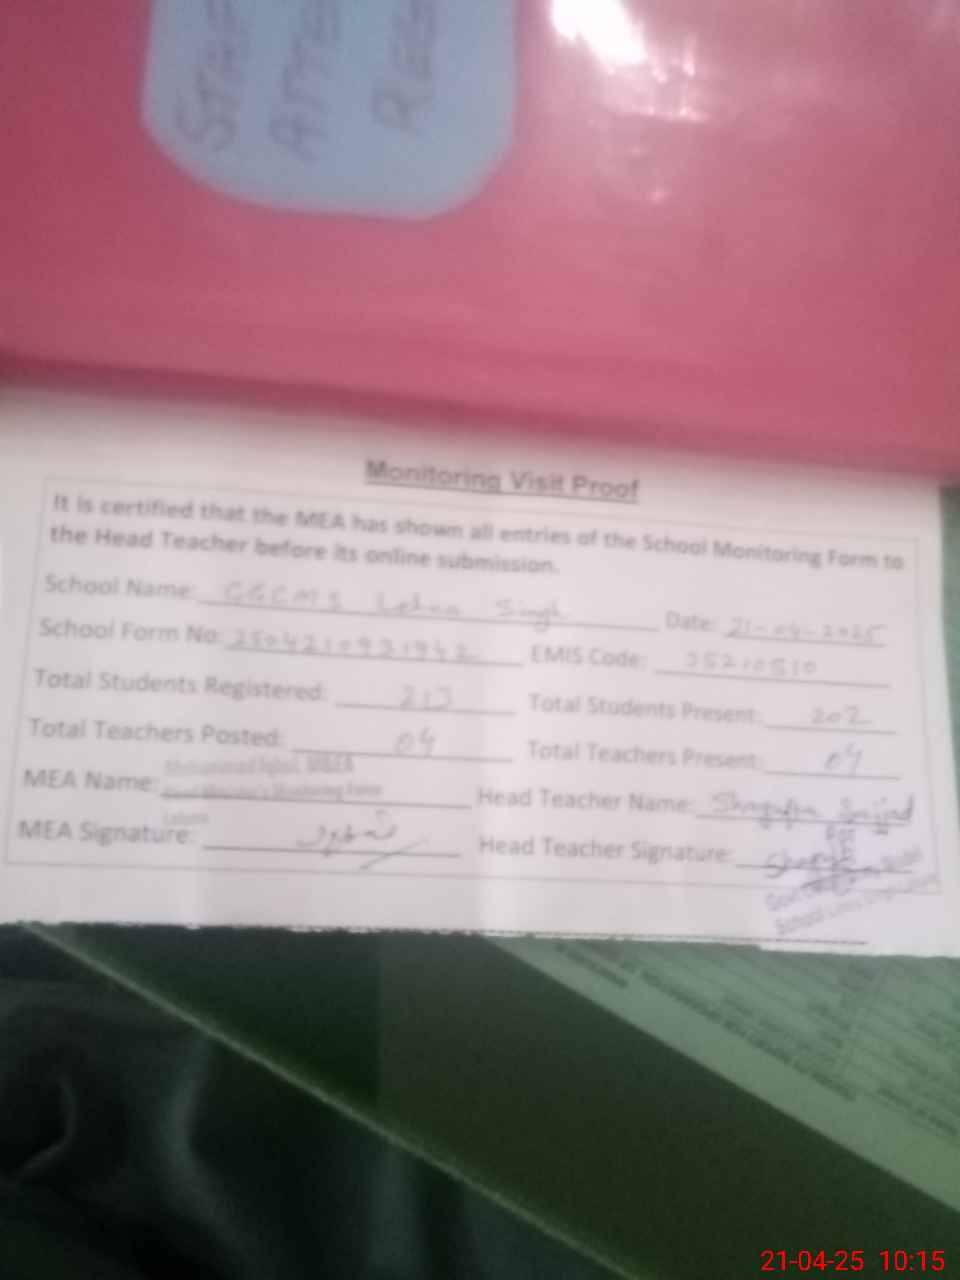 STAF
ATTE
REG
Monitoring Visit Proof
It is certified that the MEA has shown all entries of the School Monitoring Form to
the Head Teacher before its online submission.
School Name: GGCMS Lehna Singh Date: 21-04-2025
School Form No: 2504210931942 EMIS Code: 35210510
Total Students Registered: 213 Total Students Present: 202
Total Teachers Posted: 04 Total Teachers Present: 04
MEA Name: Muhammad Iqbal, MEA
Chief Minister's Monitoring Force
Lahore
Head Teacher Name: Shagufta Sajjad
MEA Signature: Head Teacher Signature:
21-04-25 10:15